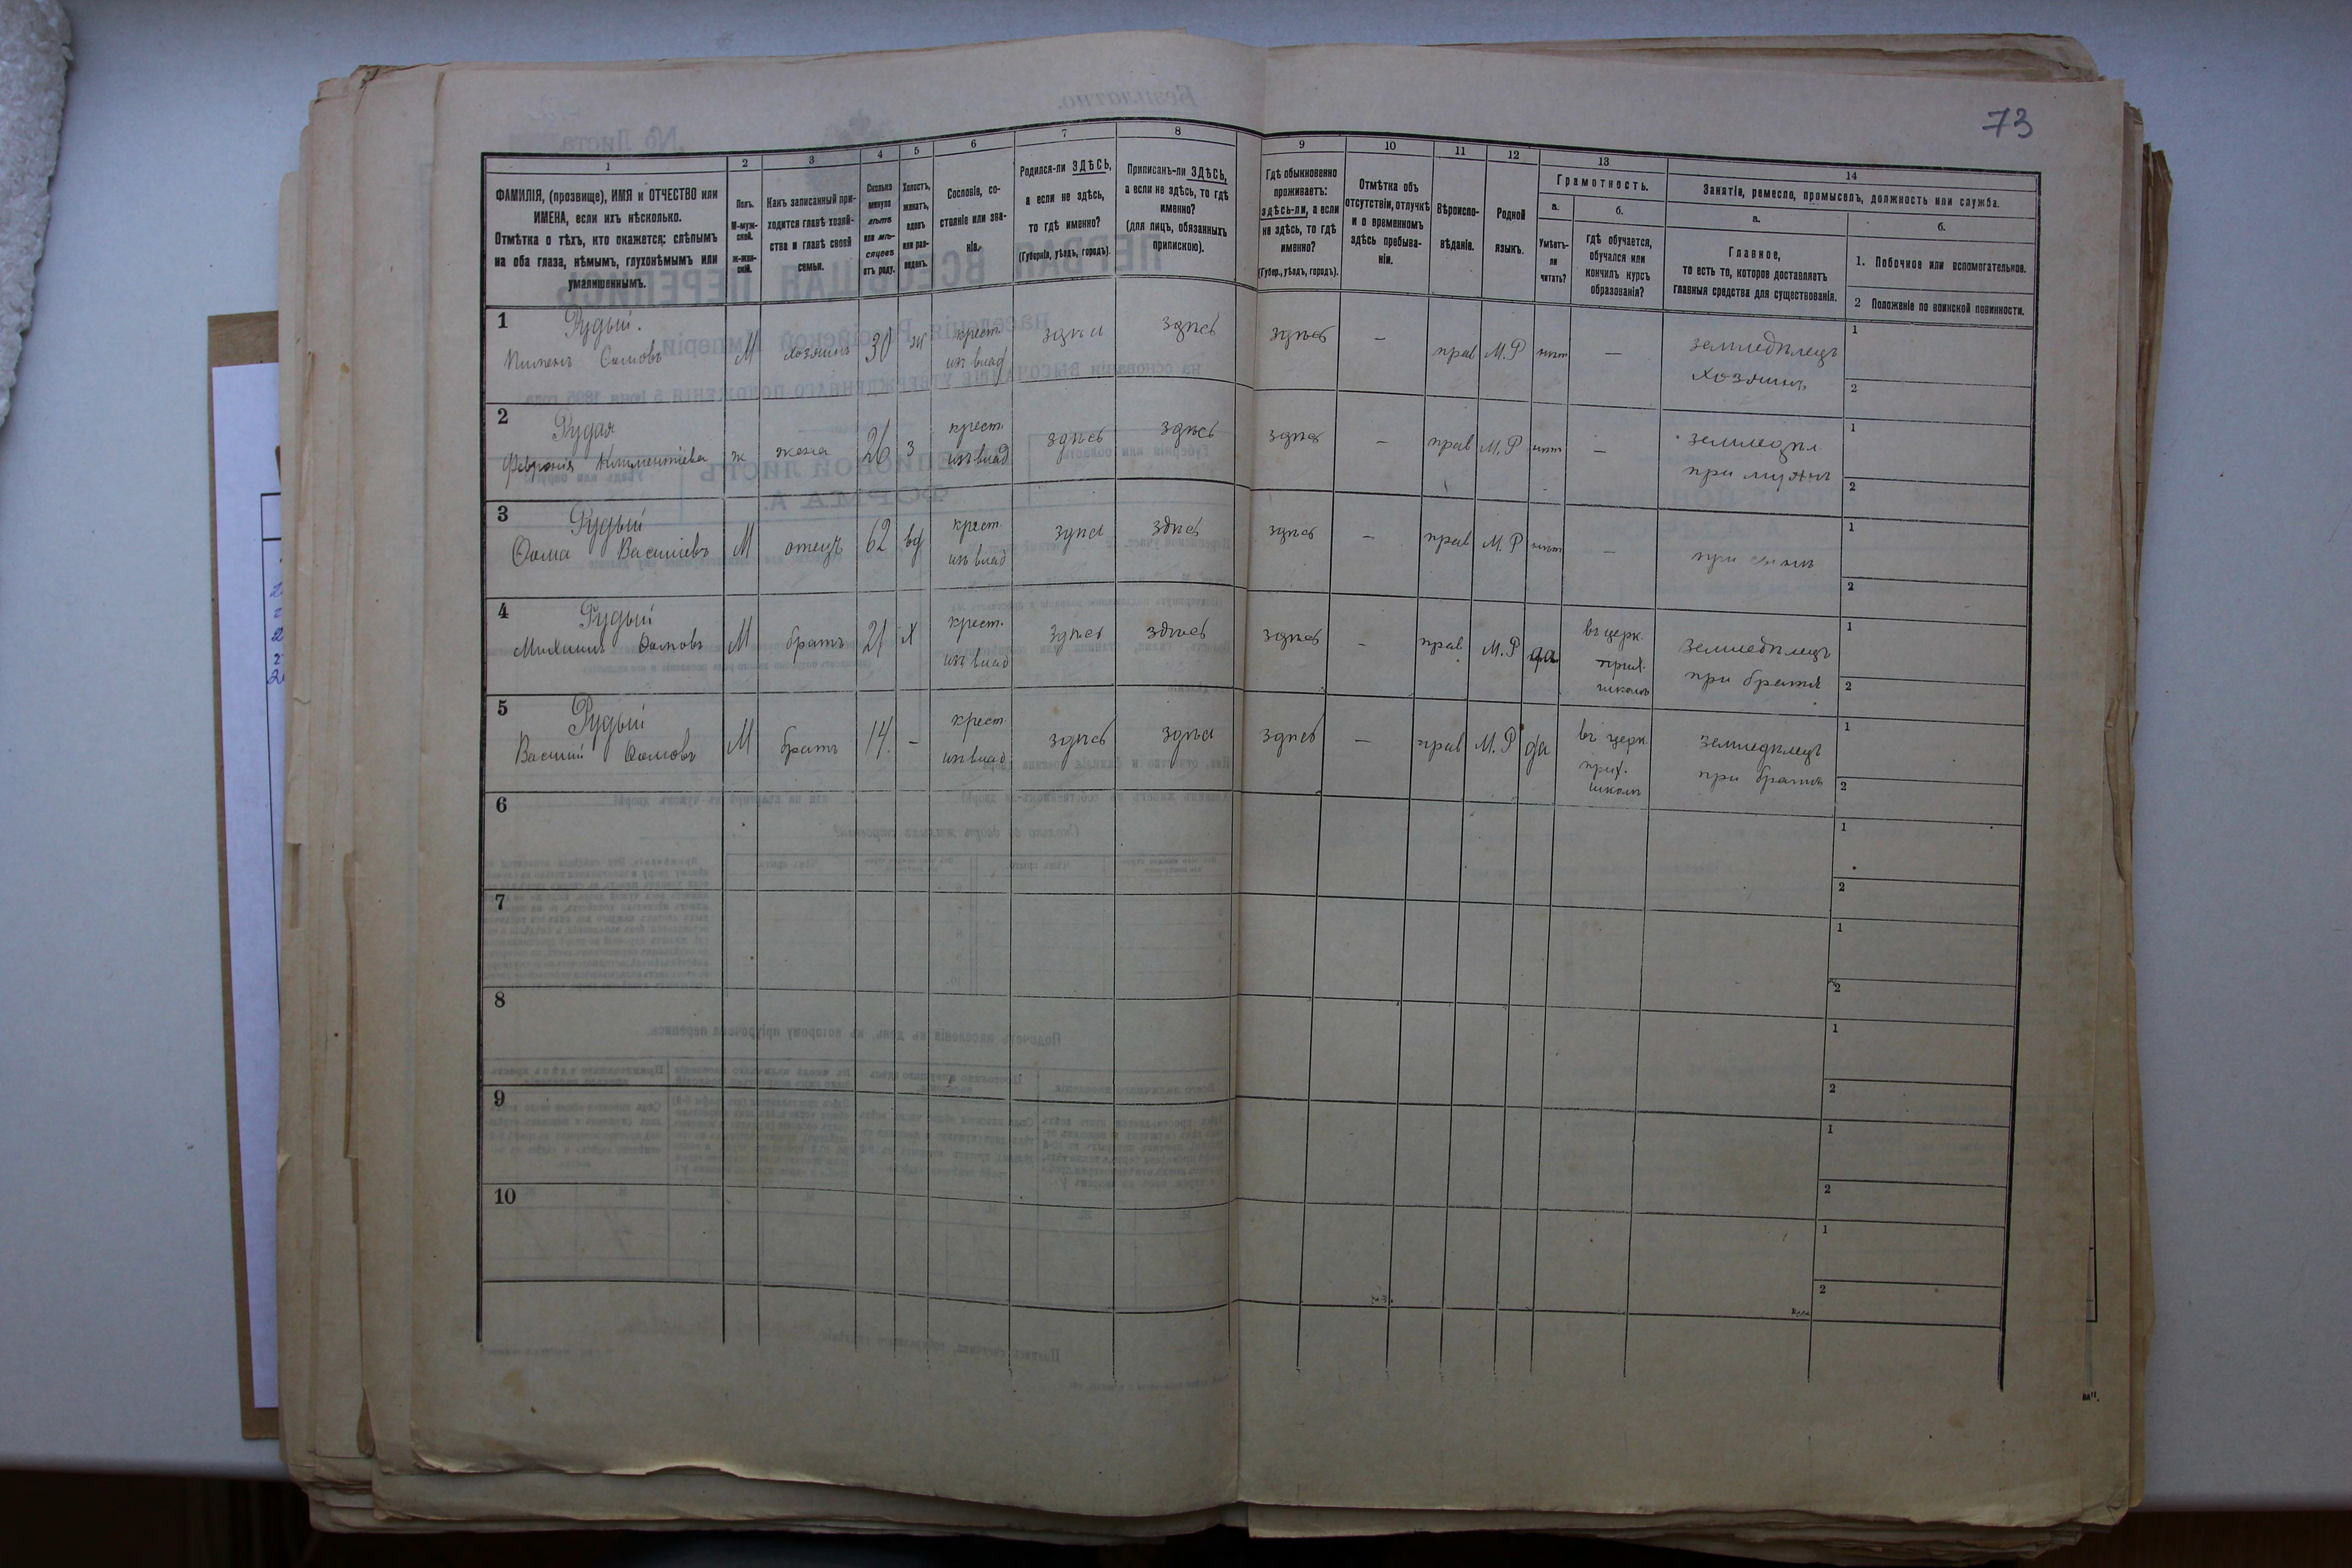 73
1 2 3 4 5 6 7 8 9 10 11 12 13 14
ФАМИЛІЯ, (прозвище), ИМЯ и ОТЧЕСТВО или
ИМЕНА, если ихъ нѣсколько.
Отмѣтка о тѣхъ, кто окажется: слѣпымъ
на оба глаза, нѣмымъ, глухонѣмымъ или
умалишеннымъ.
Полъ.
М-муж-
ской.
ж-жен-
скій.
Какъ записанный при-
ходится главѣ хозяй-
ства и главѣ своей
семьи.
Сколько
минуло
лѣтъ
или мѣ-
сяцевъ
отъ роду.
Холостъ,
женатъ,
вдовъ
или раз-
веденъ.
Сословіе, со-
стояніе или зва-
ніе.
Родился-ли ЗДѢСЬ,
а если не здѣсь,
то гдѣ именно?
(Губернія, уѣздъ, городъ).
Приписанъ-ли ЗДѢСЬ,
а если не здѣсь, то гдѣ
именно?
(для лицъ, обязанныхъ
припискою).
Гдѣ обыкновенно
проживаетъ:
здѣсь-ли, а если
не здѣсь, то гдѣ
именно?
(Губер., уѣздъ, городъ).
Отмѣтка объ
отсутствіи, отлучкѣ
и о временномъ
здѣсь пребыва-
ніи.
Вѣроиспо-
вѣданіе.
Родной
языкъ.
Грамотность.
а.
Умѣетъ-
ли
читать?
б.
гдѣ обучается,
обучался или
кончилъ курсъ
образованія?
Занятіе, ремесло, промыселъ, должность или служба.
а.
Главное,
то есть то, которое доставляетъ
главныя средства для существованія.
б.
1. Побочное или вспомогательное.
2 Положеніе по воинской повинности.
1 Рудый.
Пименъ Ѳомовъ М хозяинъ 30 ж крест. изъ влад здѣсь здѣсь здѣсь — прав М.Р нѣт — земледѣлецъ 1
хозяинъ 2
2 Рудая
Февронія Климентіева ж жена 26 з крест. изъ влад здѣсь здѣсь здѣсь — прав М.Р нѣт — земледѣл 1
при мужѣ 2
3 Рудый
Ѳома Василіевъ М отецъ 62 вд крест. изъ влад здѣсь здѣсь здѣсь — прав М.Р нѣт — 1
при сынѣ 2
4 Рудый
Ѳомовъ М братъ 21 х крест. изъ влад здѣсь здѣсь здѣсь — прав М.Р да въ церк. прих. школѣ земледѣлецъ 1
при братѣ 2
5 Рудый
Василій Ѳомовъ М братъ 14 — крест. изъ влад здѣсь здѣсь здѣсь — прав М.Р да въ церк. прих. школѣ земледѣлецъ 1
при братѣ 2
6 1
2
7 1
2
8 1
2
9 1
2
10 1
2